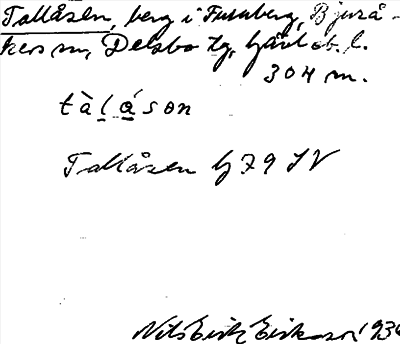 Tallåsen, berg i Furuberg, Bjurå-
kers sn, Delsbo tg, Gävleb. l.
304 m.
tàlása̤n
Tallåsen bj 79 SV
Nils Erik Eriksson 1934